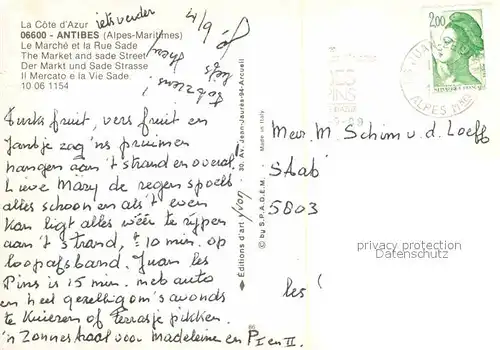 La Côte d'Azur
06600 - ANTIBES (Alpes-Maritimes)
Le Marché et la Rue Sade
The Market and sade Street
Der Markt und Sade Strasse
Il Mercato e la Vie Sade
10 06 1154
iets verder
fruit, vers fruit en
Jantje zag 'ns pruimen
hangen aan 't strand en overal!
Lieve Mary de regen spoelt
alles schoon en als 't even
kan ligt alles wéér te rijpen
aan 't strand, ± 10 min. op
loopafstand. Juan les
Pins is 15 min. met auto
en heel gezellig om 's avonds
te kuieren of Terrasje pikken
'n Zonnestraal voor Madeleine en PI en II.
Editions d'art yvon - 30, Av. Jean-Jaurès-94-Arcueil
© by S.P.A.D.E.M. - Made in Italy
2,00
ALPES MMES
Mevr. M. Schim v. d. Loeff
5803
privacy protection
Datenschutz